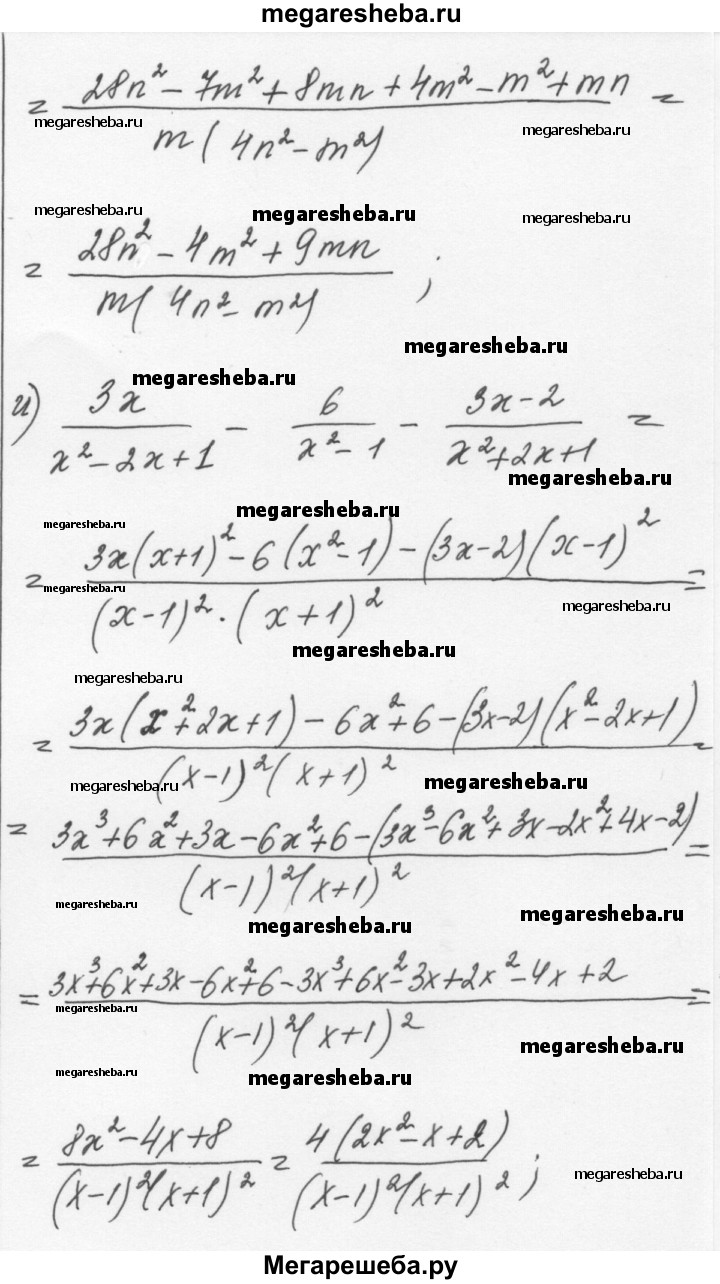 megaresheba.ru
= (28n² - 7m² + 8mn + 4m² - m² + mn) / (m(4n² - m²)) =
megaresheba.ru megaresheba.ru
megaresheba.ru megaresheba.ru megaresheba.ru
= (28n² - 4m² + 9mn) / (m(4n² - m²)) ;
megaresheba.ru
megaresheba.ru
и) 3x / (x² - 2x + 1) - 6 / (x² - 1) - (3x - 2) / (x² + 2x + 1) =
megaresheba.ru
megaresheba.ru megaresheba.ru
= (3x(x+1)² - 6(x² - 1) - (3x-2)(x-1)²) / ((x-1)² · (x+1)²) =
megaresheba.ru megaresheba.ru
megaresheba.ru
megaresheba.ru
= (3x(x² + 2x + 1) - 6x² + 6 - (3x-2)(x² - 2x + 1)) / ((x-1)²(x+1)²) =
megaresheba.ru megaresheba.ru
= (3x³ + 6x² + 3x - 6x² + 6 - (3x³ - 6x² + 3x - 2x² + 4x - 2)) / ((x-1)²(x+1)²) =
megaresheba.ru megaresheba.ru
megaresheba.ru
= (3x³ + 6x² + 3x - 6x² + 6 - 3x³ + 6x² - 3x + 2x² - 4x + 2) / ((x-1)²(x+1)²) =
megaresheba.ru megaresheba.ru
megaresheba.ru megaresheba.ru
= (8x² - 4x + 8) / ((x-1)²(x+1)²) = 4(2x² - x + 2) / ((x-1)²(x+1)²) ;
megaresheba.ru
Мегарешеба.ру